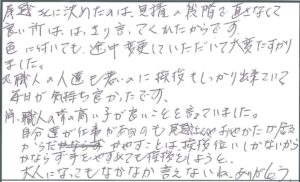 さんに決めたのは、見積の段階で直さなくて
良い所は、はっきり言ってくれたからです。
色に付いても、途中変更していただいて大変たすかり
ました。
又職人の人達も若いのに挨拶もしっかり出来ていて
毎日が気持も良かったです。
尚、職人の 高い子が良いことを言っていました。
自分達が仕事があるのも おやかたが居る
からだ やすことは挨拶位いしかないから
かならず手をやすめても挨拶をしようと。
大人になってもなかなか言えないね、ありがとう